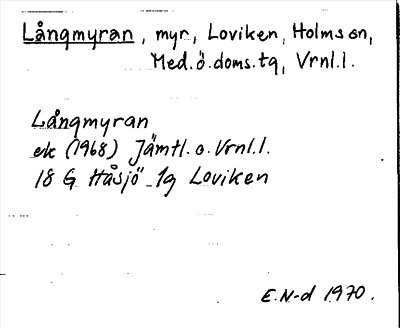 Långmyran, myr, Loviken, Holms sn,
Med.ö.doms.tg, Vrnl.l.
Långmyran
ek (1968) Jämtl. o. Vrnl.l.
18 G Håsjö 1g Loviken
E.N-d 1970.